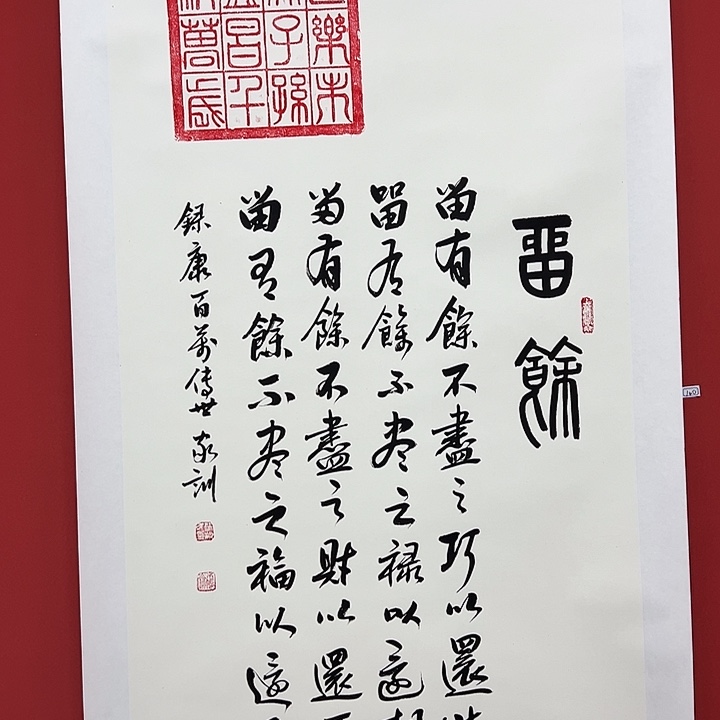 樂未
子孫
昌千
萬歲
畱餘
留有餘不盡之巧以還
留有餘不盡之祿以還
留有餘不盡之財以還
留有餘不盡之福以還
錄康百萬傳世家訓